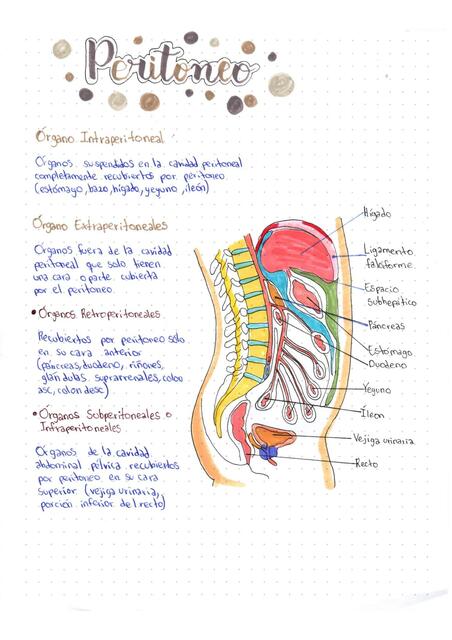 Peritoneo
Órgano Intraperitoneal
Órganos suspendidos en la cavidad peritoneal
completamente recubiertos por peritoneo
(estómago, bazo, hígado, yeyuno, íleon)
Órgano Extraperitoneales
Órganos fuera de la cavidad
peritoneal que solo tienen
una cara o parte cubierta
por el peritoneo.
• Órganos Retroperitoneales
Recubiertos por peritoneo solo
en su cara anterior
(páncreas, duodeno, riñones,
glándulas suprarrenales, colon
asc, colon desc)
• Órganos Subperitoneales o
Infraperitoneales
Órganos de la cavidad
abdominal pélvica recubiertos
por peritoneo en su cara
superior (vejiga urinaria,
porción inferior del recto)
Hígado
Ligamento
falsiforme
Espacio
subhepático
Páncreas
Estómago
Duodeno
Yeyuno
Íleon
Vejiga urinaria
Recto